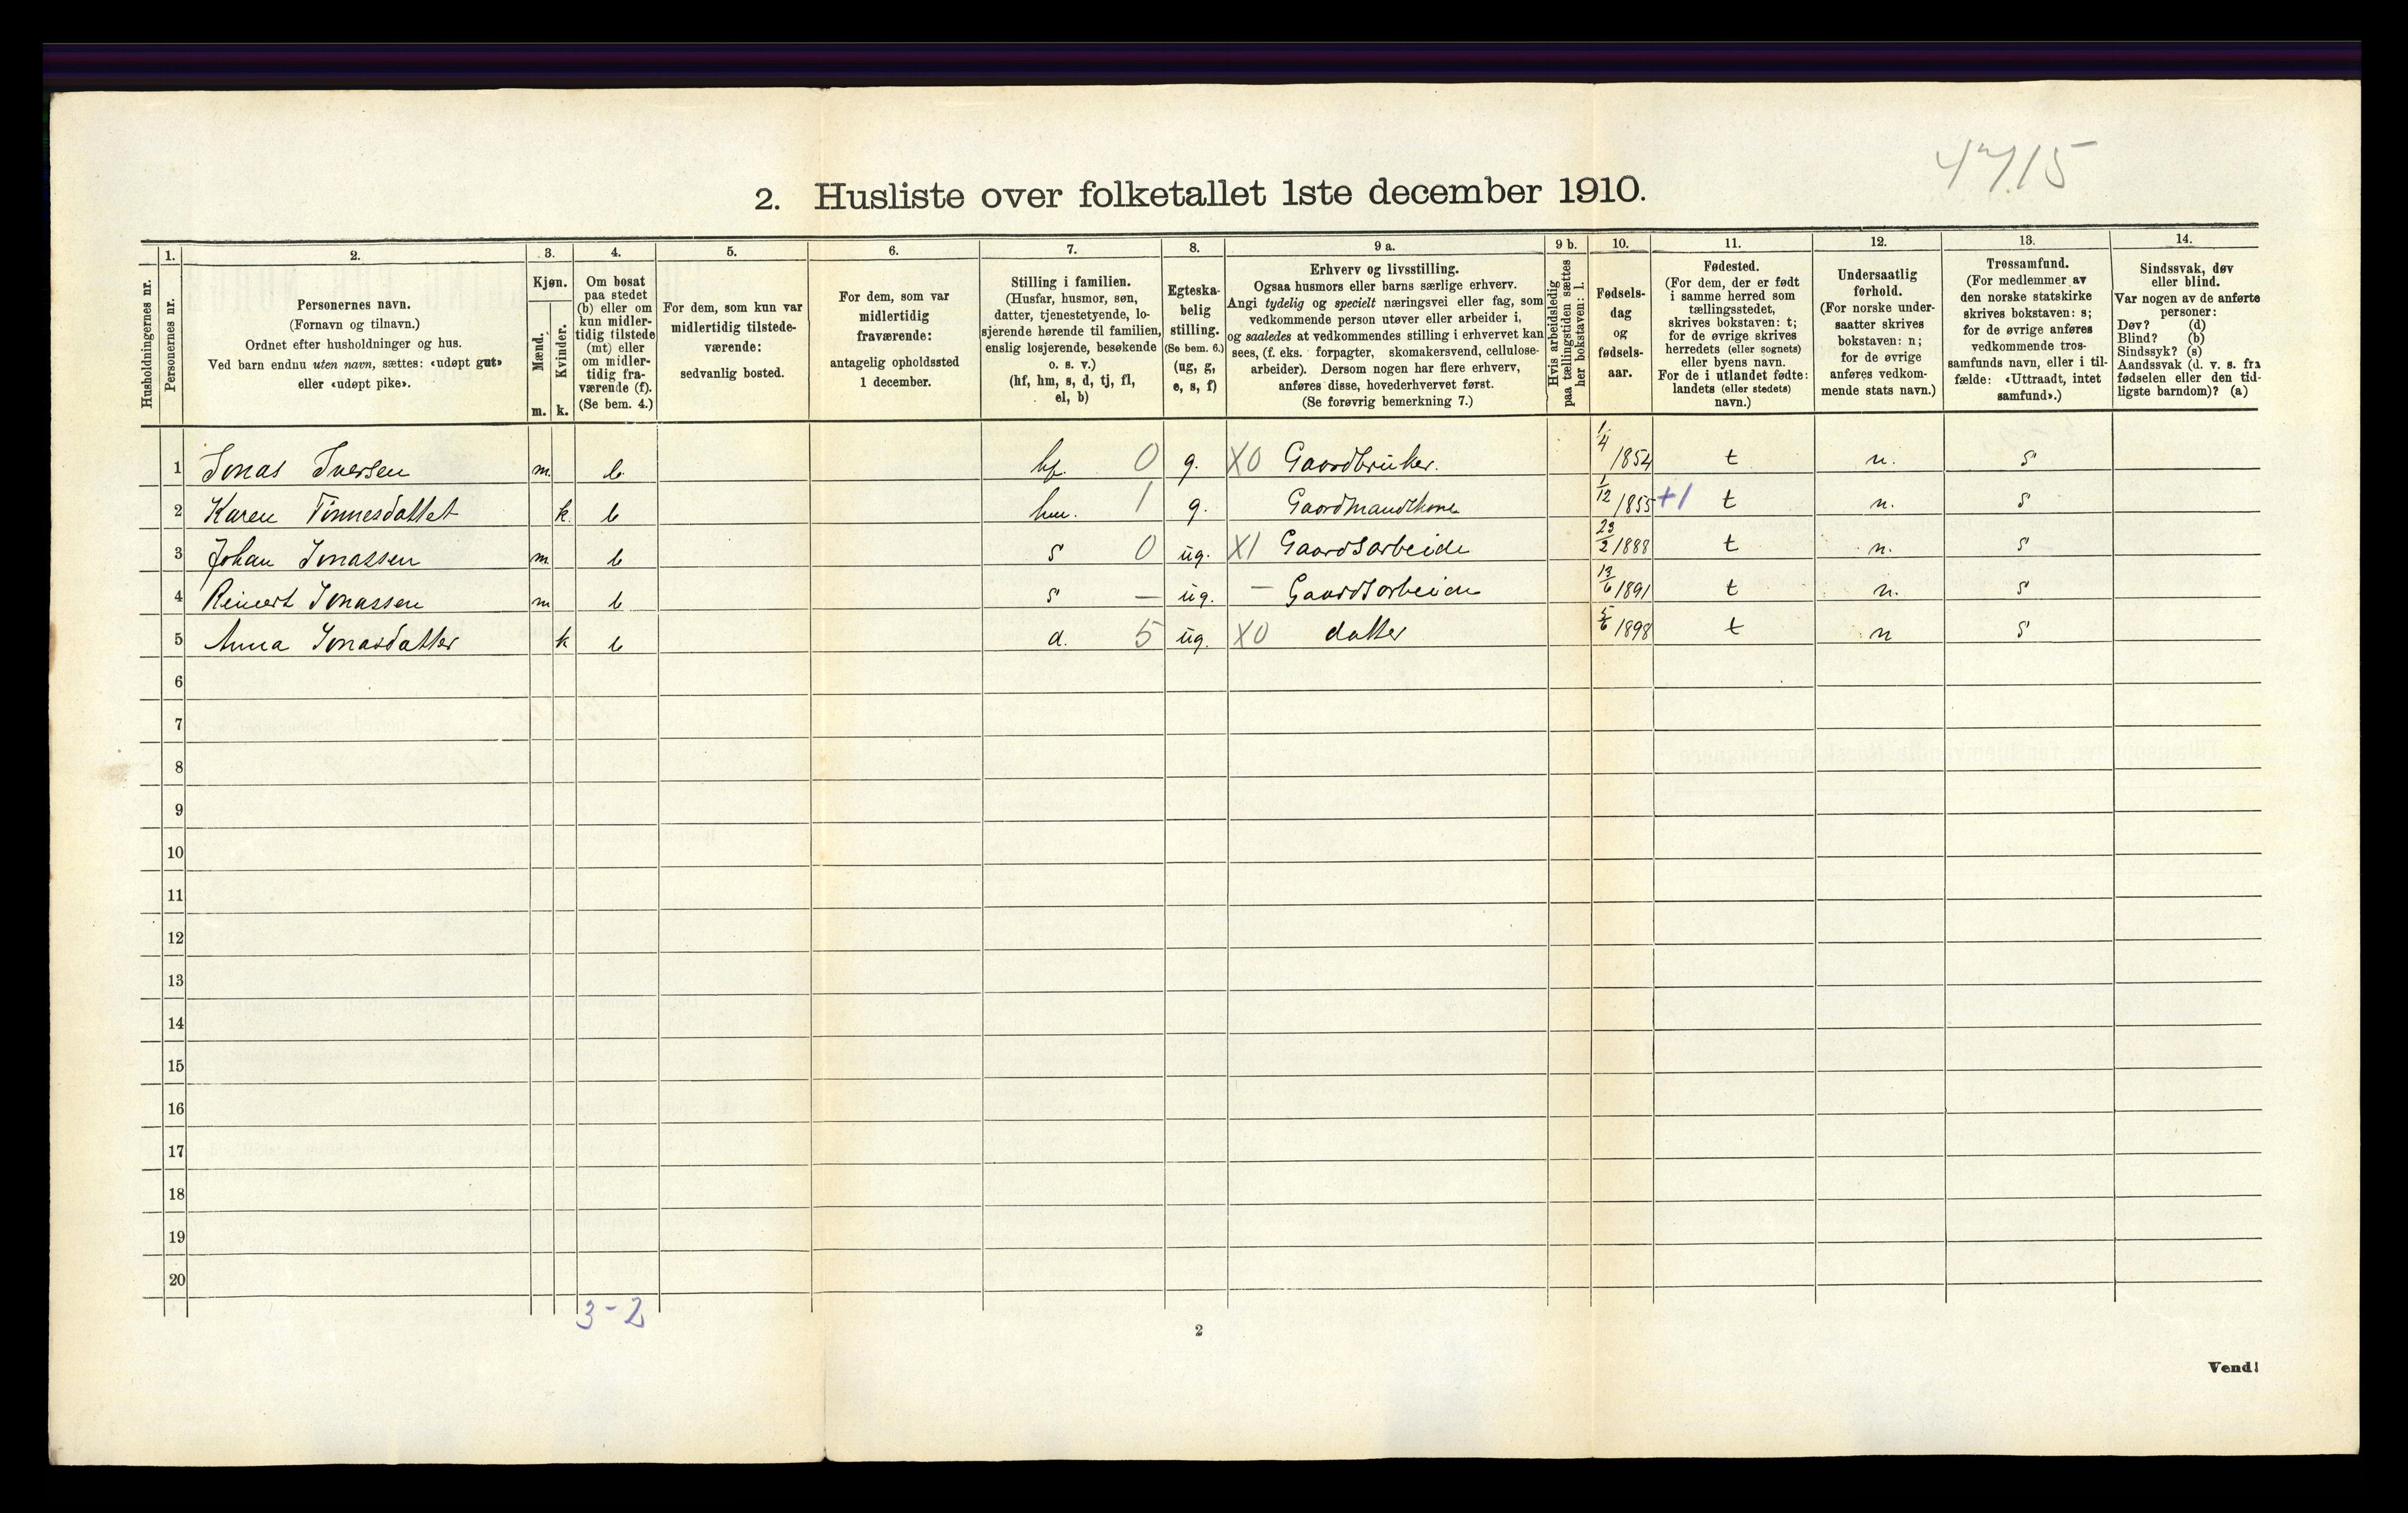 4715
2. Husliste over folketallet 1ste december 1910.
Husholdningernes nr.
1.
Personernes nr.
2.
Personernes navn.
(Fornavn og tilnavn.)
Ordnet efter husholdninger og hus.
Ved barn endnu uten navn, sættes: «udøpt gut»
eller «udøpt pike».
3.
Kjøn.
Mænd.
Kvinder.
m. k.
4.
Om bosat
paa stedet
(b) eller om
kun midler-
tidig tilstede
(mt) eller
om midler-
tidig fra-
værende (f).
(Se bem. 4.)
5.
For dem, som kun var
midlertidig tilstede-
værende:
sedvanlig bosted.
6.
For dem, som var
midlertidig
fraværende:
antagelig opholdssted
1 december.
7.
Stilling i familien.
(Husfar, husmor, søn,
datter, tjenestetyende, lo-
sjerende hørende til familien,
enslig losjerende, besøkende
o. s. v.)
(hf, hm, s, d, tj, fl,
el, b)
8.
Egteska-
belig
stilling.
(Se bem. 6.)
(ug, g,
e, s, f)
9 a.
Erhverv og livsstilling.
Ogsaa husmors eller barns særlige erhverv.
Angi tydelig og specielt næringsvei eller fag, som
vedkommende person utøver eller arbeider i,
og saaledes at vedkommendes stilling i erhvervet kan
sees, (f. eks. forpagter, skomakersvend, cellulose-
arbeider). Dersom nogen har flere erhverv,
anføres disse, hovederhvervet først.
(Se forøvrig bemerkning 7.)
9 b.
Hvis arbeidsledig
paa tællingstiden sættes
her bokstaven: l.
10.
Fødsels-
dag
og
fødsels-
aar.
11.
Fødested.
(For dem, der er født
i samme herred som
tællingsstedet,
skrives bokstaven: t;
for de øvrige skrives
herredets (eller sognets)
eller byens navn.
For de i utlandet fødte:
landets (eller stedets)
navn.)
12.
Undersaatlig
forhold.
(For norske under-
saatter skrives
bokstaven: n;
for de øvrige
anføres vedkom-
mende stats navn.)
13.
Trossamfund.
(For medlemmer av
den norske statskirke
skrives bokstaven: s;
for de øvrige anføres
vedkommende tros-
samfunds navn, eller i til-
fælde: «Uttraadt, intet
samfund».)
14.
Sindssvak, døv
eller blind.
Var nogen av de anførte
personer:
Døv? (d)
Blind? (b)
Sindssyk? (s)
Aandssvak (d. v. s. fra
fødselen eller den tid-
ligste barndom)? (a)
1 Jonas Iversen m. b. hf. 0 g. X0 Gaardbruker. 1/4 1854 t n. s
2 Karen Tønnesdatter k. b hm. 1 g. Gaardmandskone 1/12 1855 +1 t n. s
3 Johan Jonassen m b s 0 ug. X1 Gaardsarbeide 23/2 1888 t n. s
4 Reinert Jonassen m b s — ug. — Gaardsarbeide 13/6 1891 t n. s
5 Anna Jonasdatter k b d. 5 ug. X0 datter 5/6 1898 t n s
6
7
8
9
10
11
12
13
14
15
16
17
18
19
20
3-2
2
Vend!